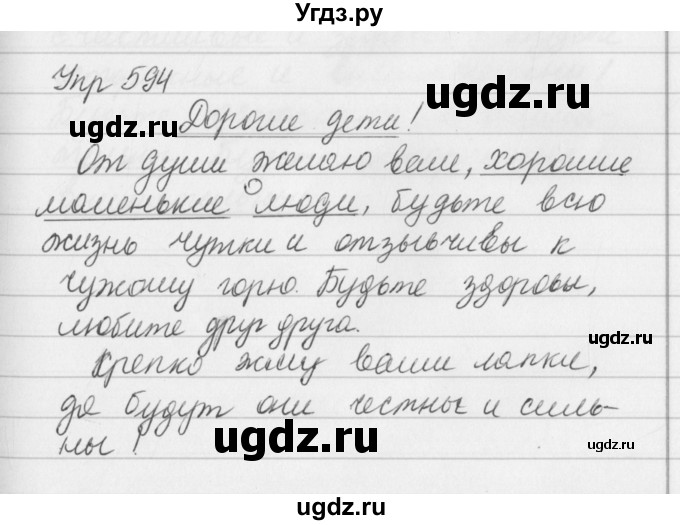 Угдз.ру
Упр 594
ugdz.ru
ugdz.ru
Дорогие дети!
От души желаю вам, хорошие
маленькие люди, будьте всю
ugdz.ru
жизнь чутки и отзывчивы к
чужому горю. Будьте здоровы,
ugdz.ru
любите друг друга.
Крепко жму ваши лапки,
да будут они честны и силь-
ugdz.ru
ны!
ugdz.ru
ugdz.ru